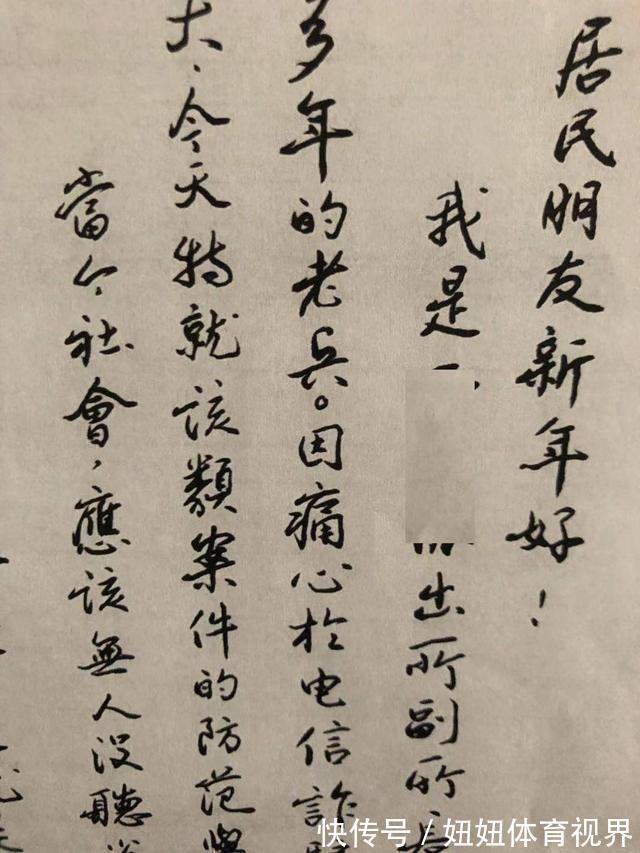 居民朋友新年好！
我是一出所副所長
多年的老兵。因痛心於电信詐騙
大、今天特就該類案件的防范與
當今社會，應該無人没聽說
快传号／妞妞体育视界